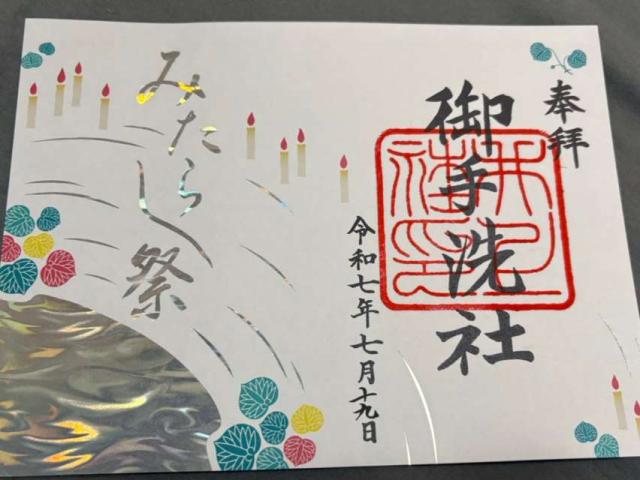 奉拝
御手洗社
令和七年七月十九日
みたらし祭